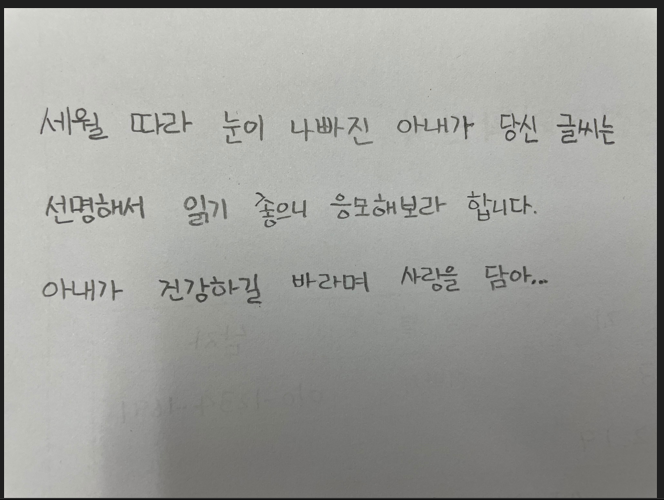 세월 따라 눈이 나빠진 아내가 당신 글씨는
선명해서 읽기 좋으니 응모해보라 합니다.
아내가 건강하길 바라며 사랑을 담아...